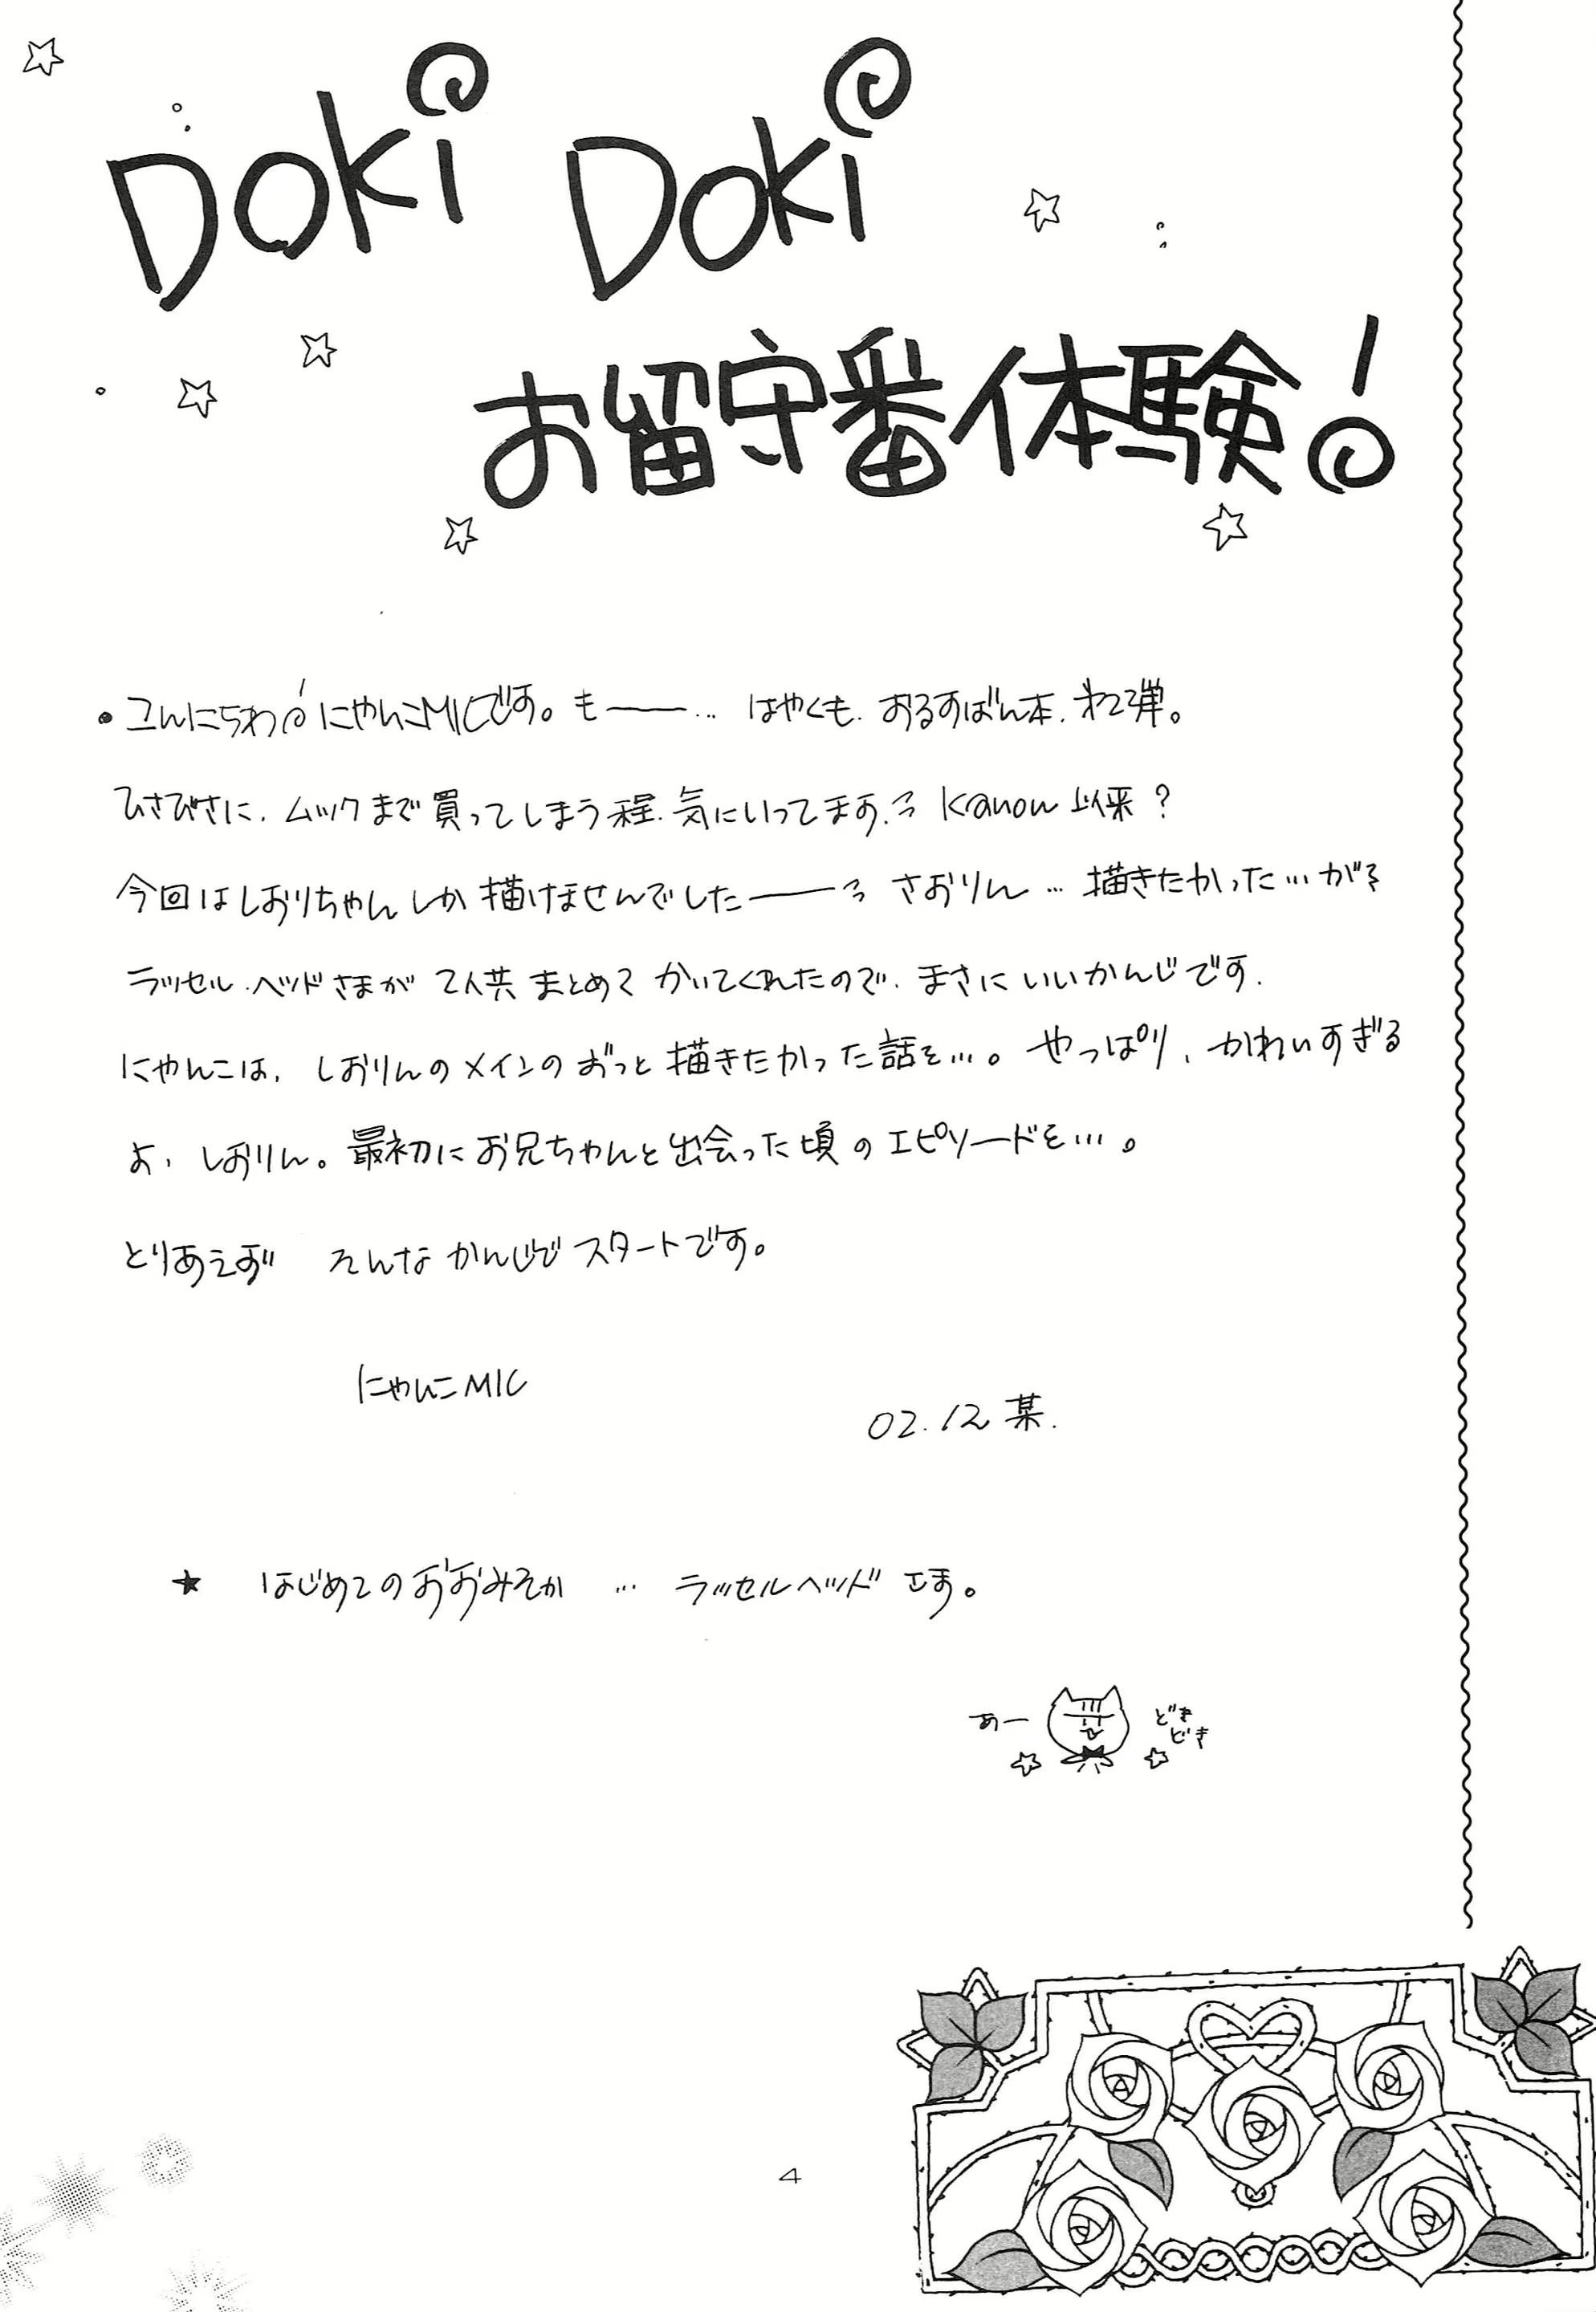 Doki Doki
お留守番体験!
・こんにちわ!にゃんこMICです。も――… はやくも、おるすばん本、第2弾。
ひさびさに、ムックまで買ってしまう程、気にいってます。 Kanon以来?
今回はしおりちゃんしか描けませんでした―― さおりん…描きたかった…が
ラッセル・ヘッドさまが 2人共まとめて かいてくれたので、まさにいいかんじです.
にゃんこは、しおりんのメインのずっと描きたかった話を…。やっぱり、かわいすぎる
よ、しおりん。最初にお兄ちゃんと出会った頃のエピソードを…。
とりあえず そんなかんじでスタートです。
にゃんこMIC
02.12 某.
★ はじめてのおおみそか … ラッセルヘッドさま。
あー どき
どき
4